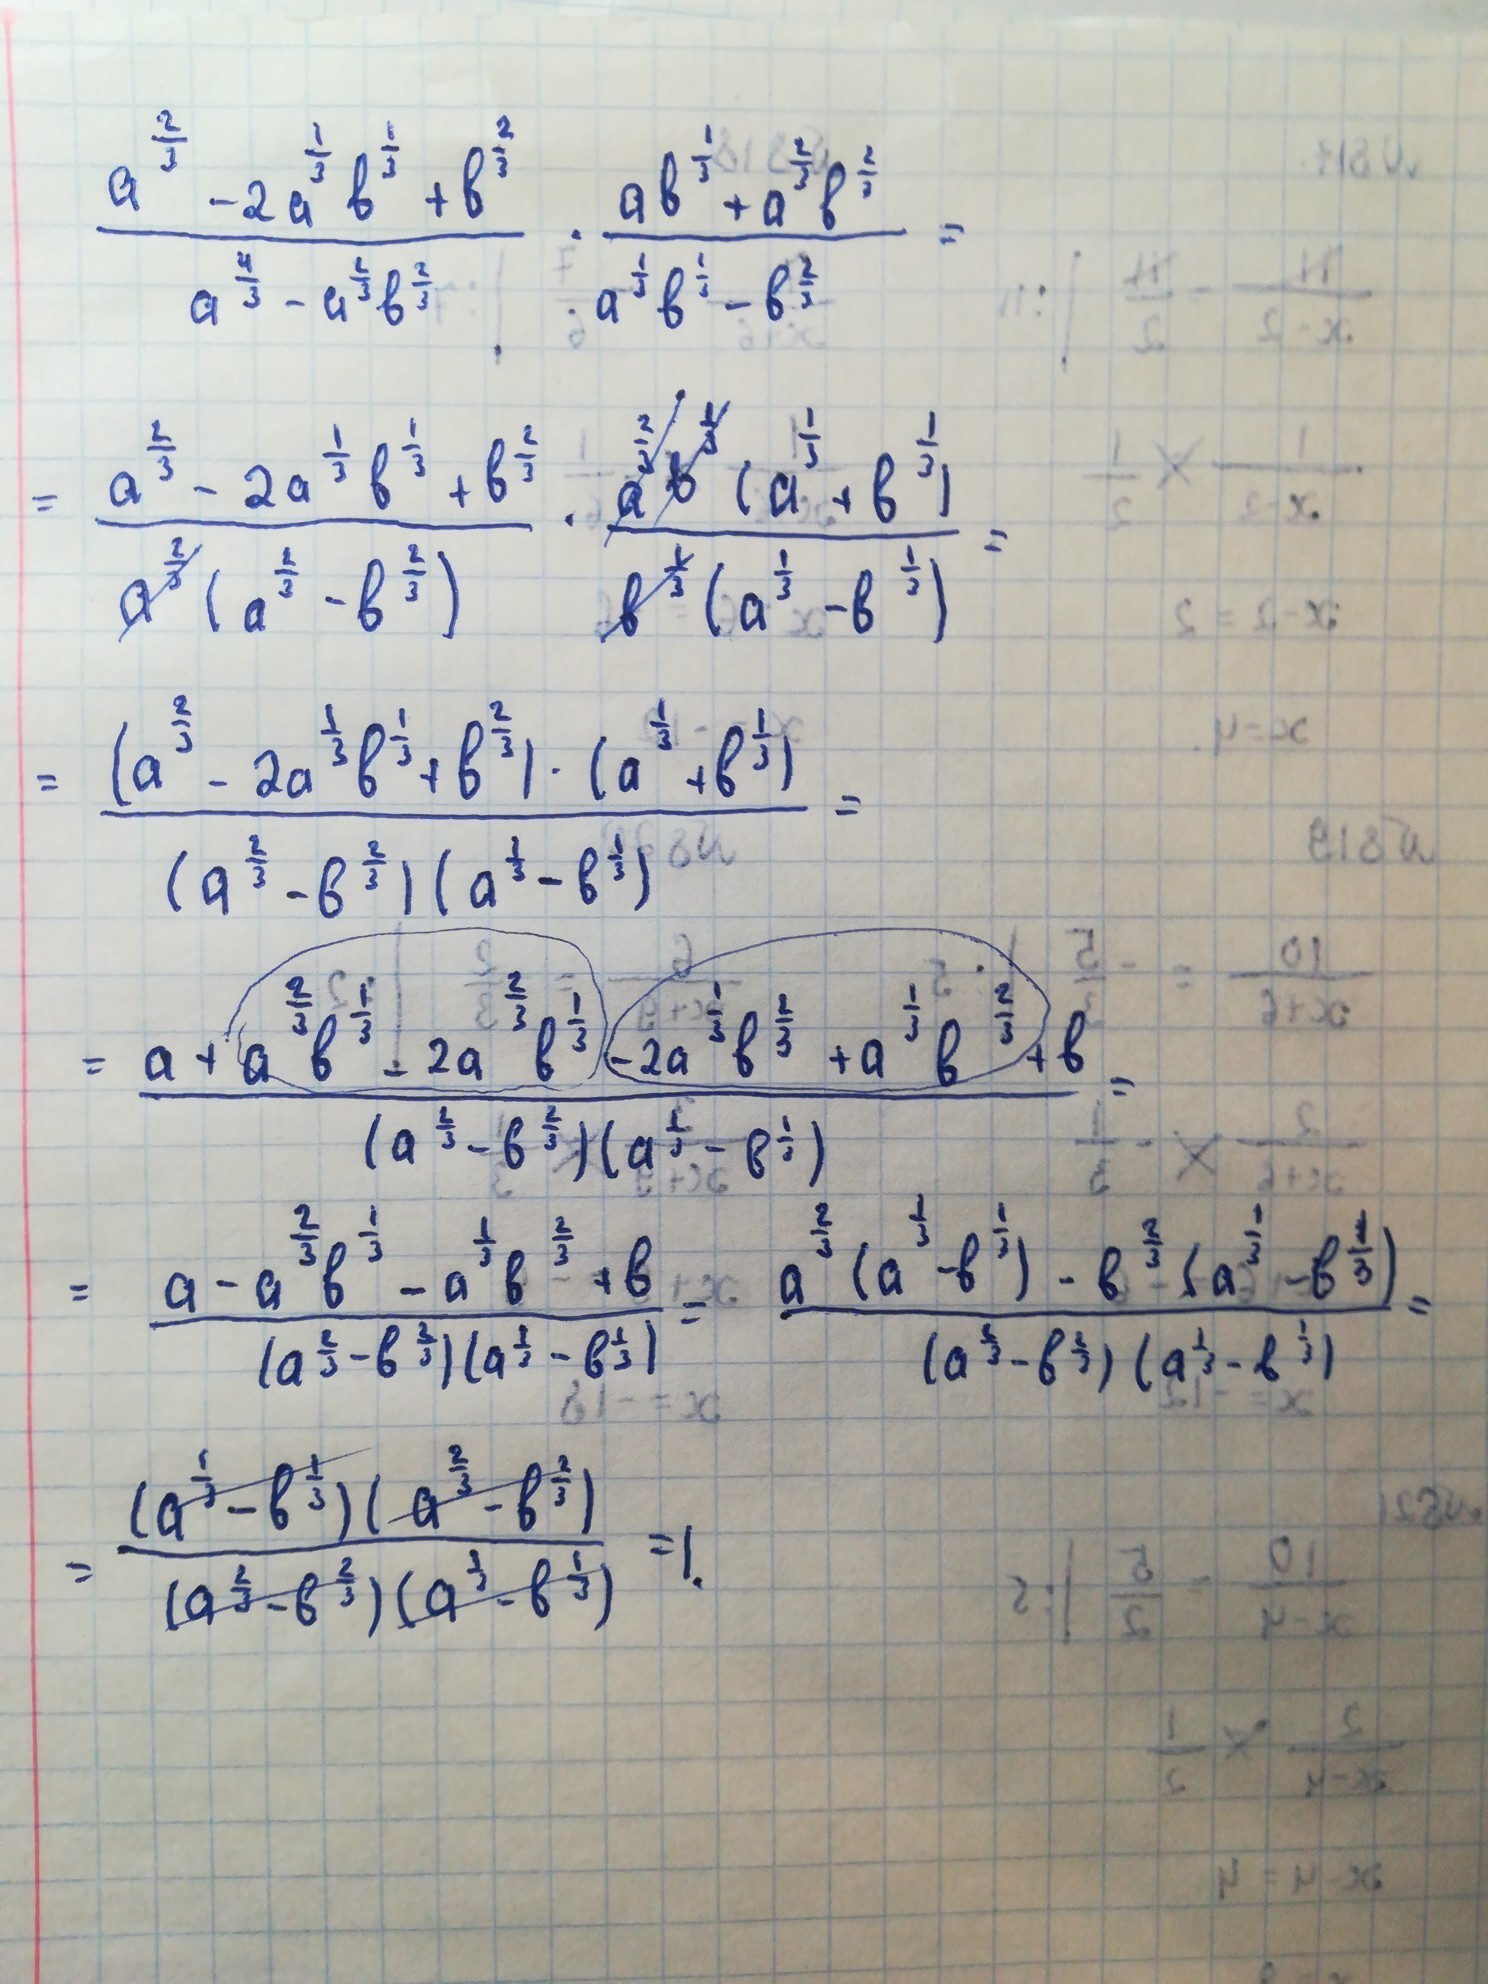 (a^(2/3) - 2a^(1/3)b^(1/3) + b^(2/3))/(a^(4/3) - a^(2/3)b^(2/3)) · (ab^(1/3) + a^(2/3)b^(2/3))/(a^(1/3)b^(1/3) - b^(2/3)) =
= (a^(2/3) - 2a^(1/3)b^(1/3) + b^(2/3))/(a^(2/3)(a^(2/3) - b^(2/3))) · (a^(2/3)b^(1/3)(a^(1/3) + b^(1/3)))/(b^(1/3)(a^(1/3) - b^(1/3))) =
= ((a^(2/3) - 2a^(1/3)b^(1/3) + b^(2/3)) · (a^(1/3) + b^(1/3)))/((a^(2/3) - b^(2/3))(a^(1/3) - b^(1/3))) =
= (a + a^(2/3)b^(1/3) - 2a^(2/3)b^(1/3) - 2a^(1/3)b^(2/3) + a^(1/3)b^(2/3) + b)/((a^(2/3) - b^(2/3))(a^(1/3) - b^(1/3))) =
= (a - a^(2/3)b^(1/3) - a^(1/3)b^(2/3) + b)/((a^(2/3) - b^(2/3))(a^(1/3) - b^(1/3))) = (a^(2/3)(a^(1/3) - b^(1/3)) - b^(2/3)(a^(1/3) - b^(1/3)))/((a^(2/3) - b^(2/3))(a^(1/3) - b^(1/3))) =
= ((a^(1/3) - b^(1/3))(a^(2/3) - b^(2/3)))/((a^(2/3) - b^(2/3))(a^(1/3) - b^(1/3))) = 1.